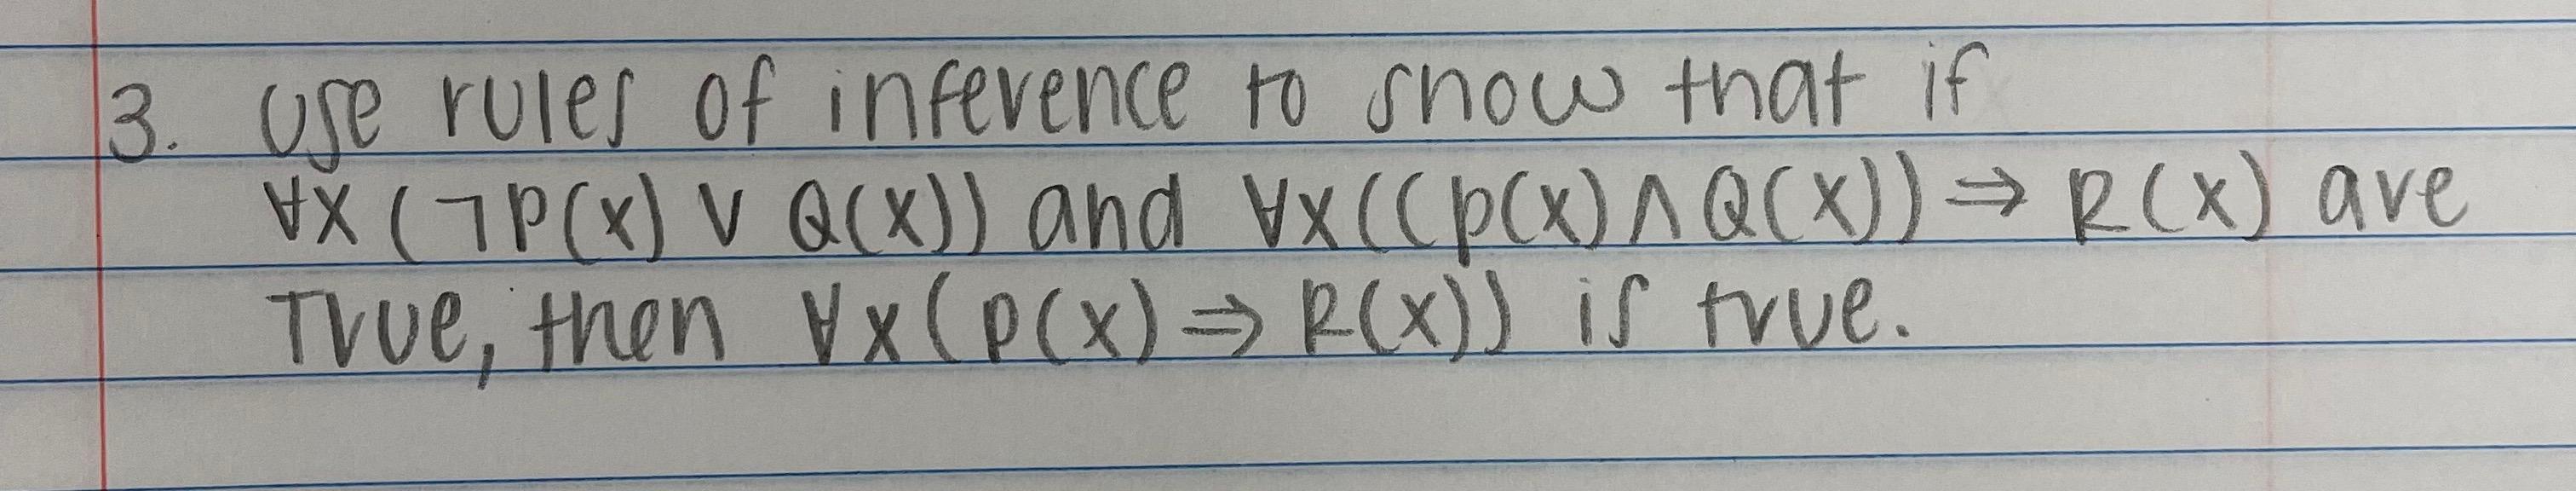 3. Use rules of inference to show that if
∀x (¬P(x) ∨ Q(x)) and ∀x((P(x) ∧ Q(x)) ⇒ R(x) are
True, then ∀x(P(x) ⇒ R(x)) is true.